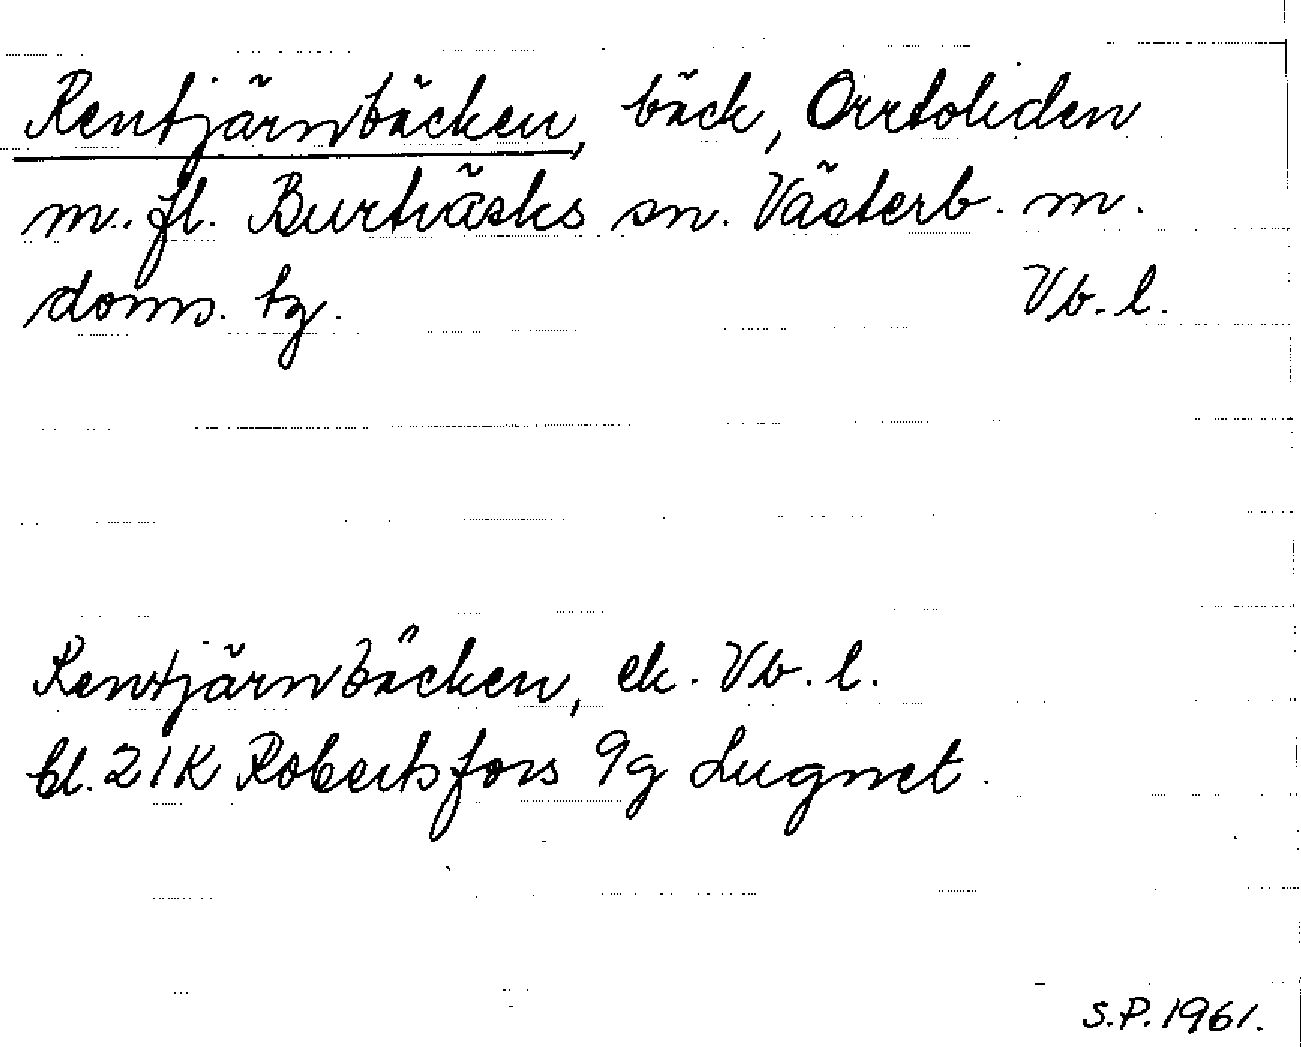 Rentjärnbäcken, bäck, Orrtoliden
m. fl. Burträsks sn. Västerb. m.
doms. tg. Vb. l.
Rentjärnbäcken, ek. Vb. l.
bl. 21K Robertsfors 9g Lugnet.
S.P. 1961.